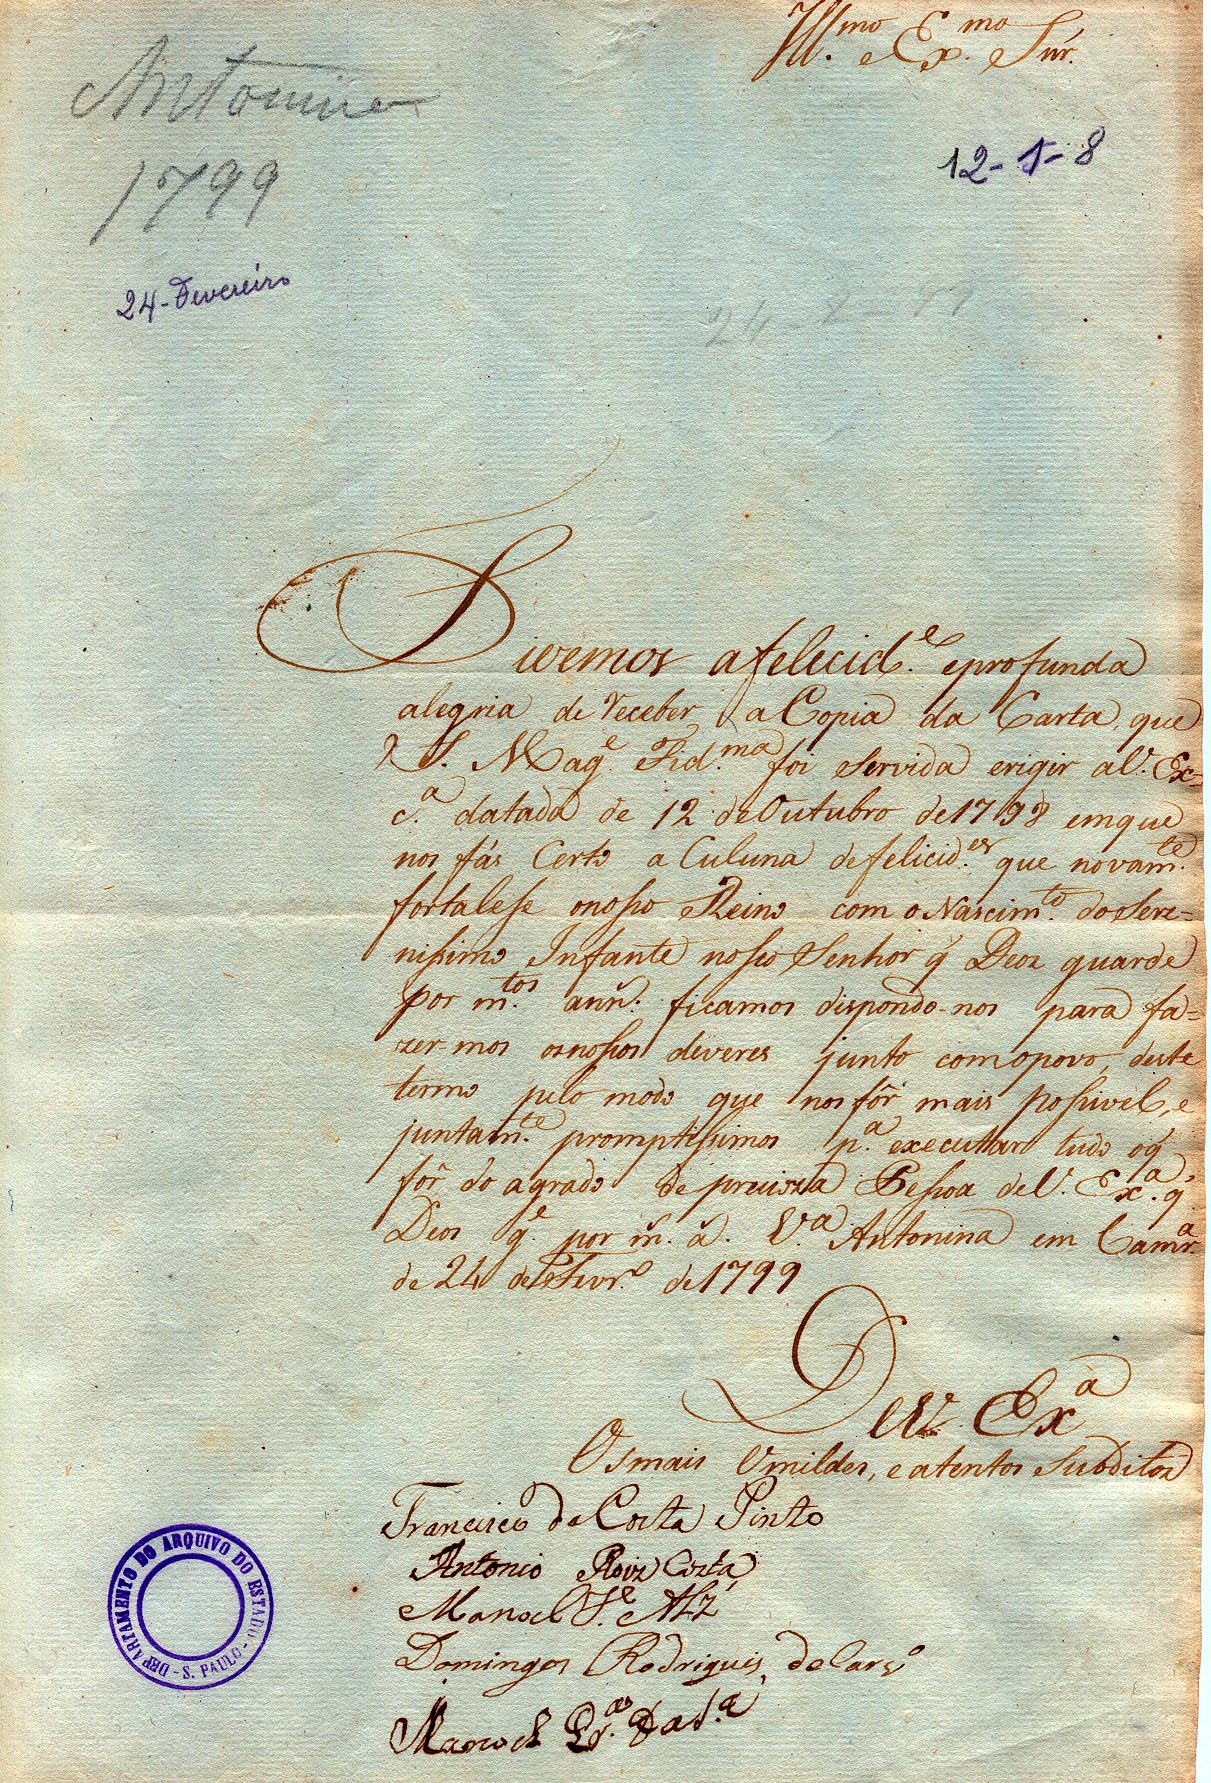 Ill.mo e Ex.mo Snr.
Antonina
1799
12-1-8
24-Fevereiro
24-2-99
Tivemos a felecid.e e profunda
alegria de receber a Copia da Carta, que
S. Mag.e Fid.ma foi servida erigir a V. Ex-
c.a datada de 12 de Outubro de 1798 em que
nos fás Certo a Culuna de felicid.es que novam.te
fortalesse o nosso Reino com o Nascim.to do Sere=
nissimo Infante nosso Senhor q̃ Deos guarde
por m.tos ann.s ficamos dispondo-nos para fa=
zer-mos os nossos deveres junto com o povo, deste
termo pelo modo que nos fôr mais possivel, e
juntam.te promptissimos p.a executar tudo o q̃
fôr do agrado de precioza Pessoa de V. Ex.a q̃
Deos g.e por m. a. V.a Antonina em Camr.a
de 24 de Fevr.o de 1799
De V. Ex.a
Os mais Umildes, e atentos Subditos
Francisco da Costa Pinto
Antonio Roiz Costa
Manoel J.e Alz
Domingos Rodrigues de Carv.o
Manoel
DEPARTAMENTO DO ARQUIVO DO ESTADO - S. PAULO -